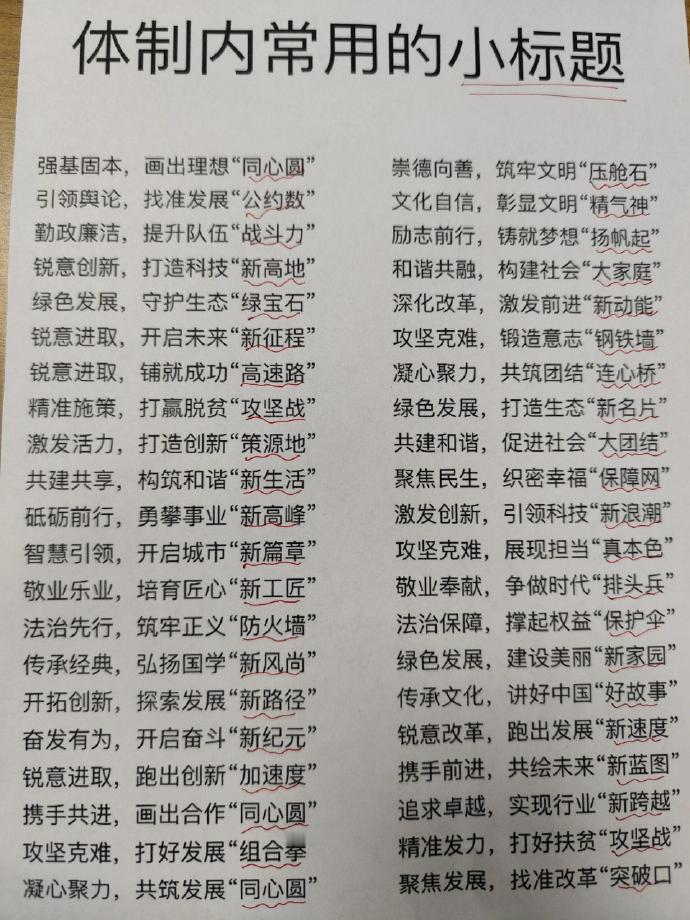 体制内常用的小标题
强基固本，画出理想“同心圆”
引领舆论，找准发展“公约数”
勤政廉洁，提升队伍“战斗力”
锐意创新，打造科技“新高地”
绿色发展，守护生态“绿宝石”
锐意进取，开启未来“新征程”
锐意进取，铺就成功“高速路”
精准施策，打赢脱贫“攻坚战”
激发活力，打造创新“策源地”
共建共享，构筑和谐“新生活”
砥砺前行，勇攀事业“新高峰”
智慧引领，开启城市“新篇章”
敬业乐业，培育匠心“新工匠”
法治先行，筑牢正义“防火墙”
传承经典，弘扬国学“新风尚”
开拓创新，探索发展“新路径”
奋发有为，开启奋斗“新纪元”
锐意进取，跑出创新“加速度”
携手共进，画出合作“同心圆”
攻坚克难，打好发展“组合拳
凝心聚力，共筑发展“同心圆”
崇德向善，筑牢文明“压舱石”
文化自信，彰显文明“精气神”
励志前行，铸就梦想“扬帆起”
和谐共融，构建社会“大家庭”
深化改革，激发前进“新动能”
攻坚克难，锻造意志“钢铁墙”
凝心聚力，共筑团结“连心桥”
绿色发展，打造生态“新名片”
共建和谐，促进社会“大团结”
聚焦民生，织密幸福“保障网”
激发创新，引领科技“新浪潮”
攻坚克难，展现担当“真本色”
敬业奉献，争做时代“排头兵”
法治保障，撑起权益“保护伞”
绿色发展，建设美丽“新家园”
传承文化，讲好中国“好故事”
锐意改革，跑出发展“新速度”
携手前进，共绘未来“新蓝图”
追求卓越，实现行业“新跨越”
精准发力，打好扶贫“攻坚战”
聚焦发展，找准改革“突破口”